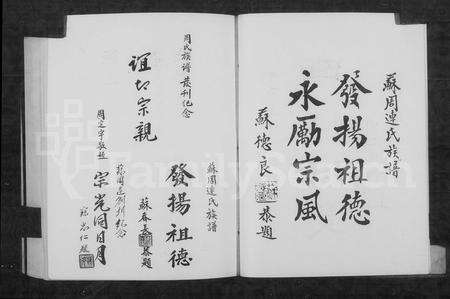 蘇周連氏族譜
發揚祖德
永勵宗風
蘇德良
恭題
蘇周連氏族譜
發揚祖德
蘇春
恭題
周氏族譜
發刊紀念
誼切宗親
周定宇敬題
族譜
創刊紀念
宗光同日月
仁題
FamilySearch